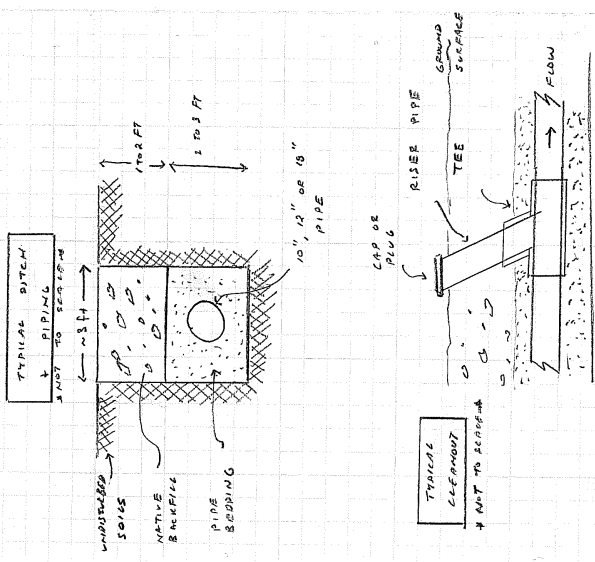 TYPICAL DITCH
+ PIPING
* NOT TO SCALE *
~3 ft
1 TO 2 FT
2 TO 3 FT
UNDISTURBED
SOILS
NATIVE
BACKFILL
PIPE
BEDDING
10", 12" OR 15"
PIPE
TYPICAL
CLEANOUT
* NOT TO SCALE *
CAP OR
PLUG
RISER PIPE
TEE
GROUND
SURFACE
FLOW